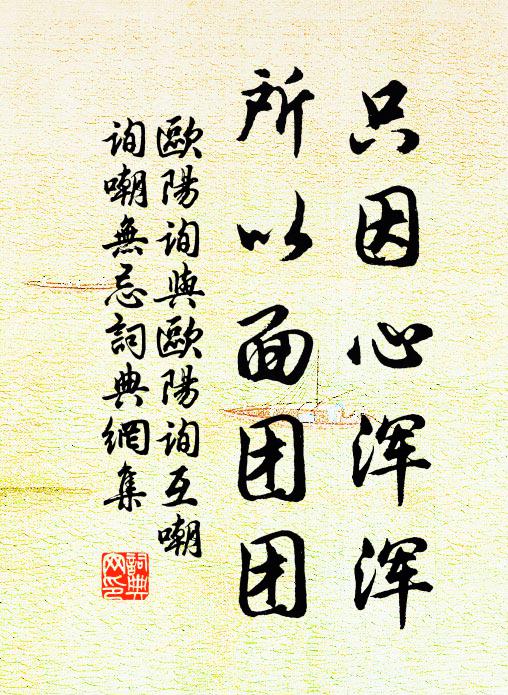 只因心浑浑
所以面团团
歐陽詢與歐陽詢互嘲
詢嘲無忌詞典網集
詞典
网印